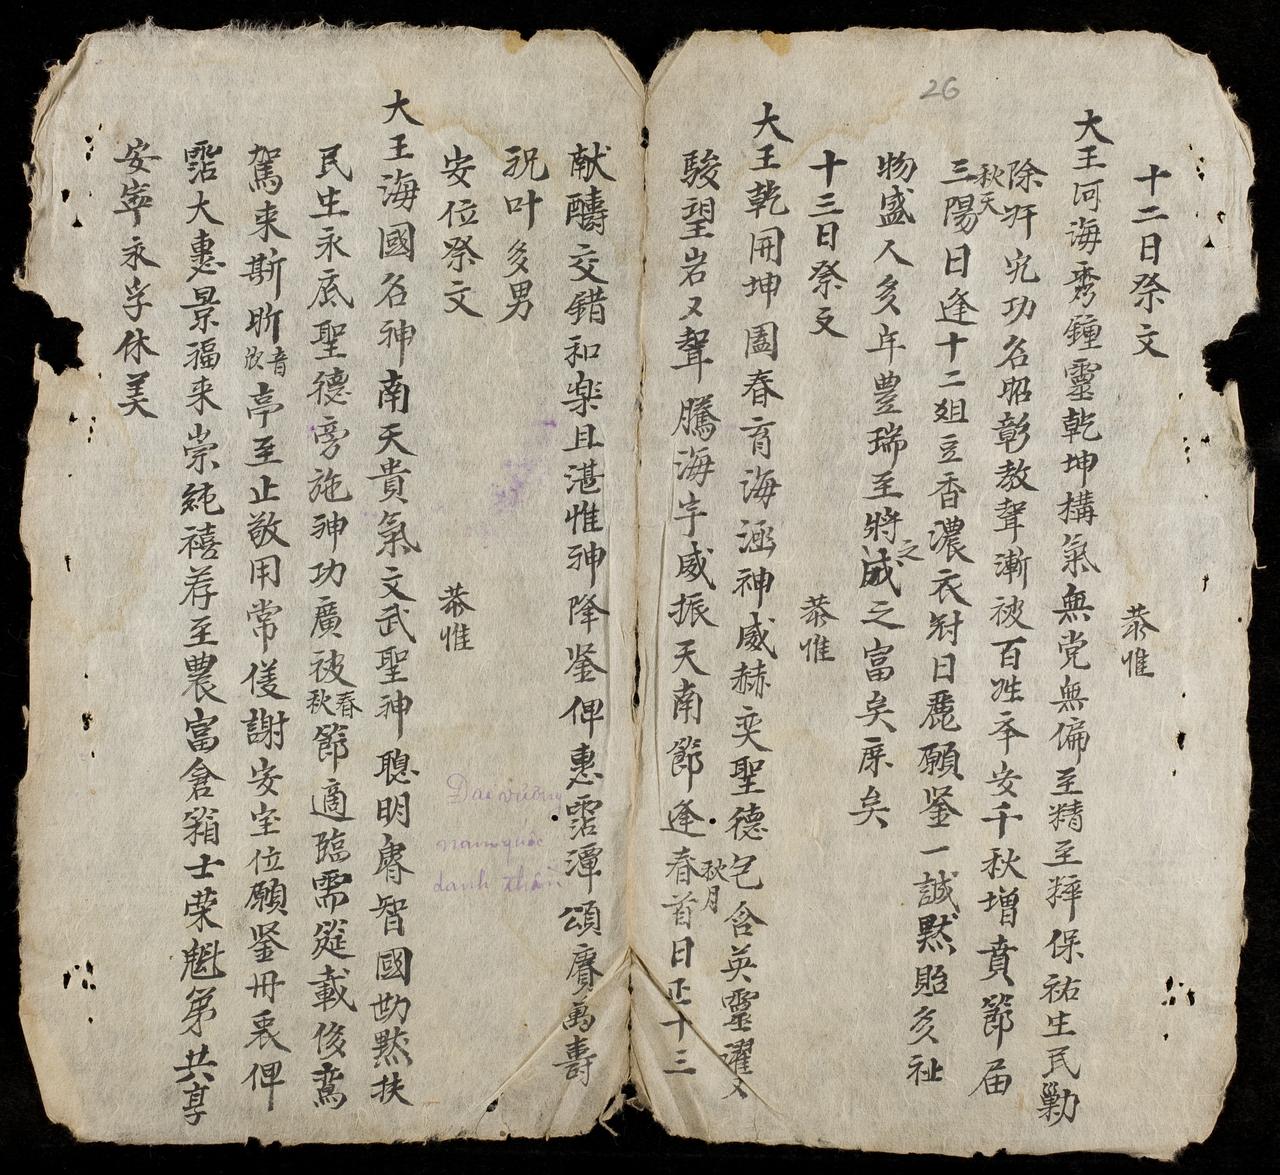 26
十二日祭文 恭惟
大王河海秀鍾靈乾坤搆氣無党無偏至精至粹保祐生民勦
除奸宄功名昭彰教聲漸被百姓夲安千秋增賁節届
秋天
三陽日逢十二爼豆香濃衣冠日麗願鉴一誠黙貽亥祉
物盛人多年豊瑞至將㦯之之富矣庶矣
十三日祭文 恭惟
大王乾開坤圍春育海涵神威赫奕聖德包含英靈濯又
駿望岩又聲騰海宇威振天南節逢春首日正十三
秋月
献醻交錯和楽且湛惟神降鉴俾惠霑潭頌賡萬壽
祝叶多男
安位祭文 恭惟
大王海國名神南天貴氣文武聖神聰明睿智國助黙扶
民生永底聖德旁施神功廣被春秋節適臨需筵載俊鸞
駕来斯昕音歆亭至止敬用常儀謝安宝位願鉴冊衷俾
霑大惠景福来崇純禧荐至農富倉箱士荣魁第共享
安寕永孚休美
Đại vương
nam quốc
danh thần